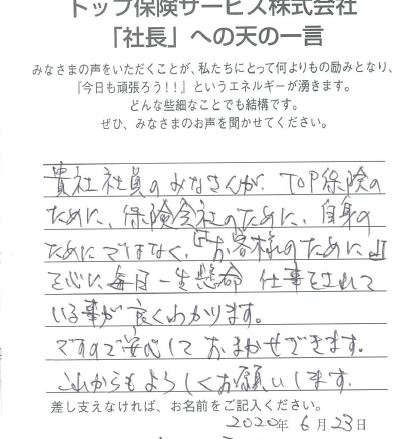 トップ保険サービス株式会社
「社長」への天の一言
みなさまの声をいただくことが、私たちにとって何よりもの励みとなり、
『今日も頑張ろう！！』というエネルギーが湧きます。
どんな些細なことでも結構です。
ぜひ、みなさまのお声を聞かせてください。
貴社社員のみなさんが、TOP保険の
ために、保険会社のために、自身の
ためにではなく、『お客様のために』
を心に毎日一生懸命 仕事をされて
いる事が良くわかります。
ですので安心しておまかせできます。
これからもよろしくお願いします。
差し支えなければ、お名前をご記入ください。
2020年 6月 23日